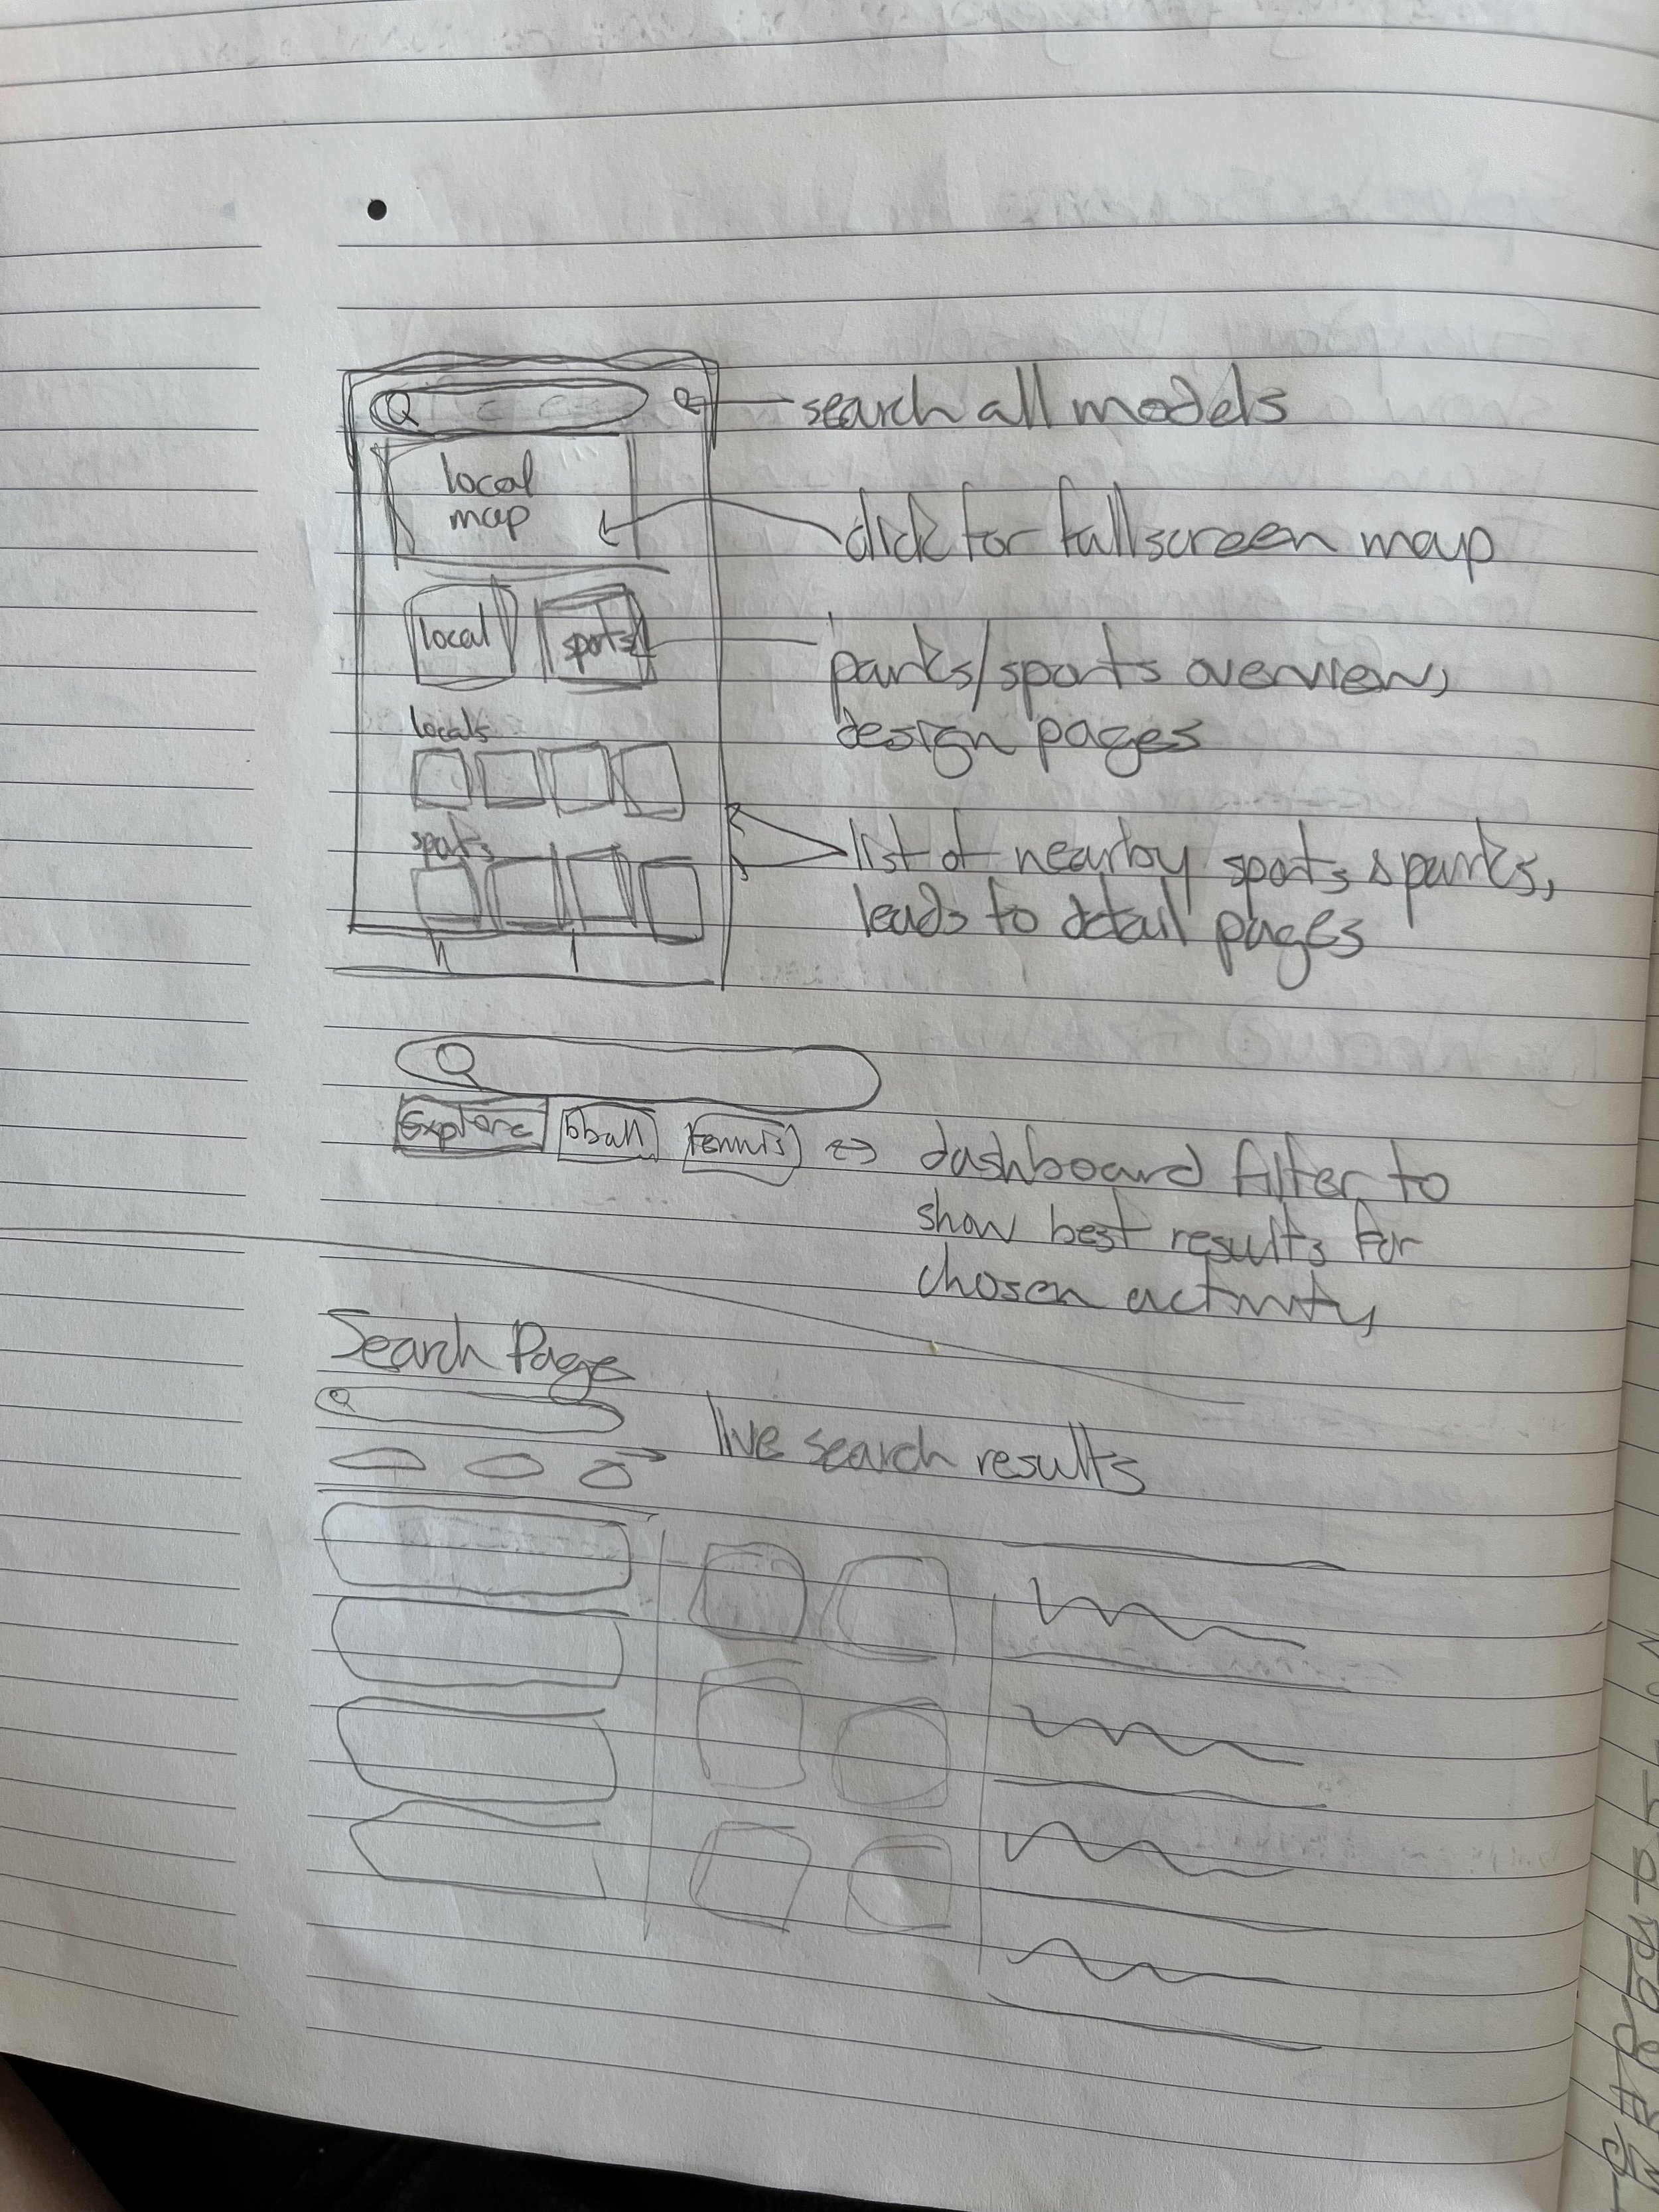 search all models
local
map
click for fullscreen map
local
sports
parks/sports overview,
design pages
locals
sports
list of nearby sports & parks,
leads to detail pages
Explore bball tennis ↔ dashboard filter to
show best results for
chosen activity
Search Page
live search results